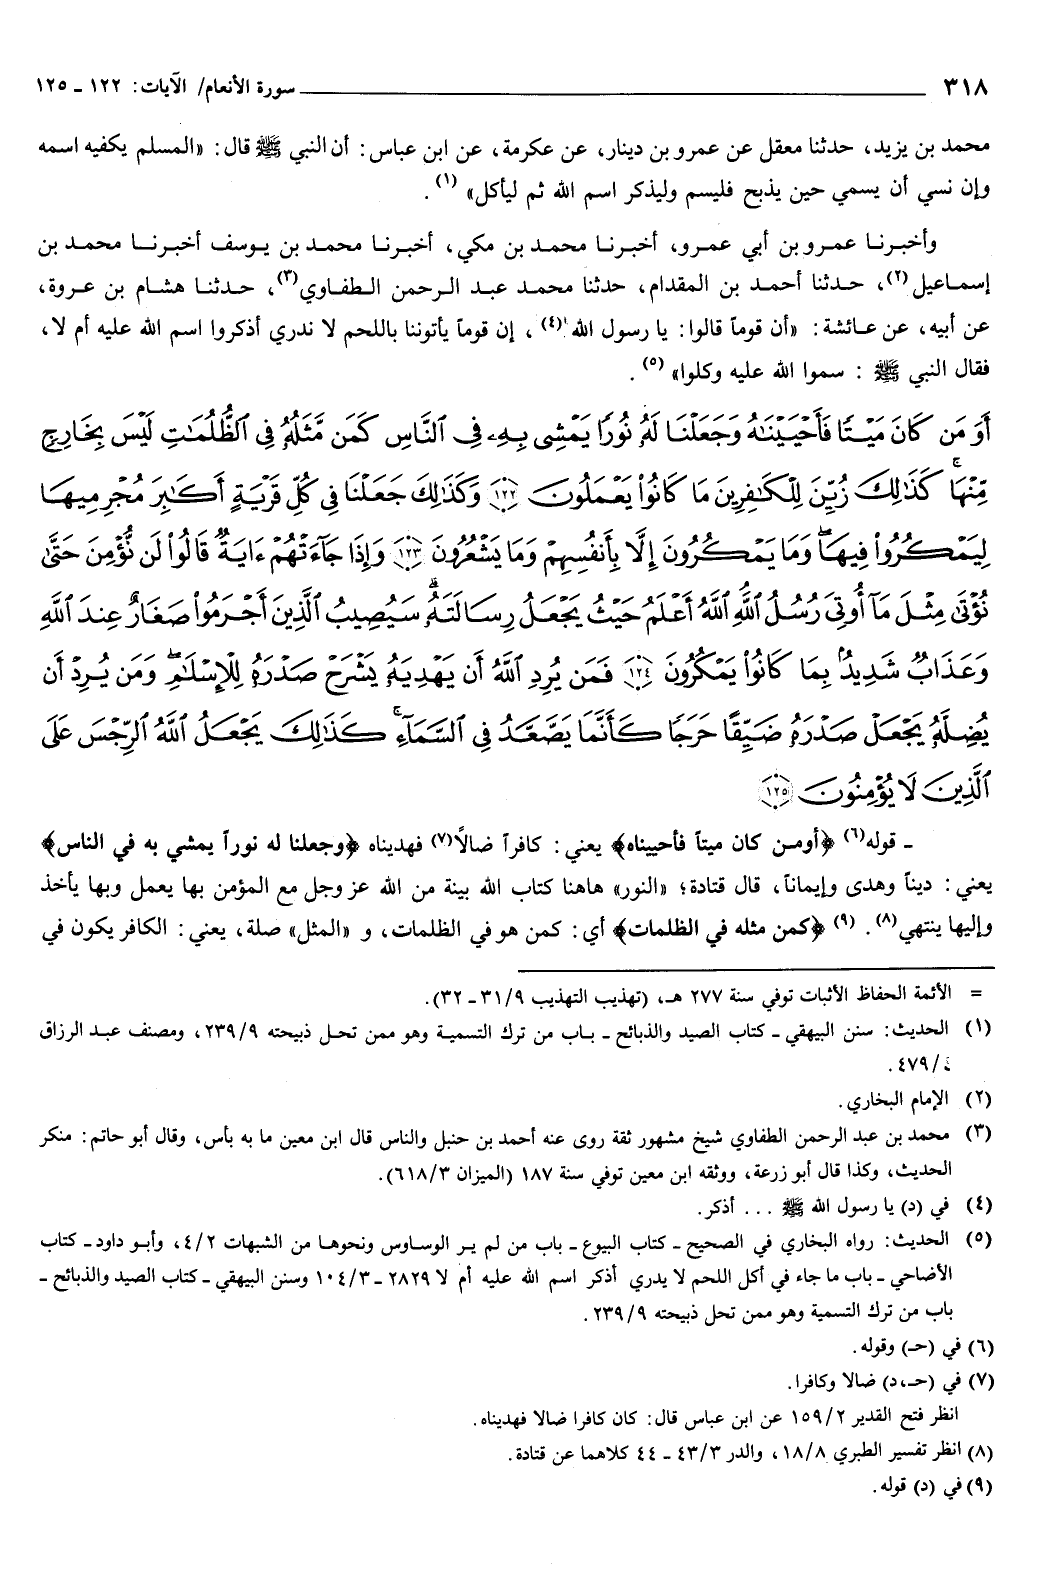 ٣١٨ سورة الأنعام/ الآيات: ١٢٢ ـ ١٢٥
محمد بن يزيد، حدثنا معقل عن عمرو بن دينار، عن عكرمة، عن ابن عباس: أن النبي ﷺ قال: «المسلم يكفيه اسمه
وإن نسي أن يسمي حين يذبح فليسم وليذكر اسم الله ثم ليأكل» (١).
وأخبرنا عمرو بن أبي عمرو، أخبرنا محمد بن مكي، أخبرنا محمد بن يوسف أخبرنا محمد بن
إسماعيل(٢)، حدثنا أحمد بن المقدام، حدثنا محمد عبد الرحمن الطفاوي(٣)، حدثنا هشام بن عروة،
عن أبيه، عن عائشة: «أن قوماً قالوا: يا رسول الله (٤)، إن قوماً يأتوننا باللحم لا ندري أذكروا اسم الله عليه أم لا،
فقال النبي ﷺ : سموا الله عليه وكلوا» (٥).
أَوَ مَن كَانَ مَيْتًا فَأَحْيَيْنَاهُ وَجَعَلْنَا لَهُۥ نُورًا يَمْشِى بِهِۦ فِى ٱلنَّاسِ كَمَن مَّثَلُهُۥ فِى ٱلظُّلُمَاتِ لَيْسَ بِخَارِجٍ
مِّنْهَا ۚ كَذَٰلِكَ زُيِّنَ لِلْكَافِرِينَ مَا كَانُوا۟ يَعْمَلُونَ ١٢٢ وَكَذَٰلِكَ جَعَلْنَا فِى كُلِّ قَرْيَةٍ أَكَابِرَ مُجْرِمِيهَا
لِيَمْكُرُوا۟ فِيهَا ۖ وَمَا يَمْكُرُونَ إِلَّا بِأَنفُسِهِمْ وَمَا يَشْعُرُونَ ١٢٣ وَإِذَا جَآءَتْهُمْ ءَايَةٌ قَالُوا۟ لَن نُّؤْمِنَ حَتَّىٰ
نُؤْتَىٰ مِثْلَ مَآ أُوتِىَ رُسُلُ ٱللَّهِ ۘ ٱللَّهُ أَعْلَمُ حَيْثُ يَجْعَلُ رِسَالَتَهُۥ ۗ سَيُصِيبُ ٱلَّذِينَ أَجْرَمُوا۟ صَغَارٌ عِندَ ٱللَّهِ
وَعَذَابٌ شَدِيدٌۢ بِمَا كَانُوا۟ يَمْكُرُونَ ١٢٤ فَمَن يُرِدِ ٱللَّهُ أَن يَهْدِيَهُۥ يَشْرَحْ صَدْرَهُۥ لِلْإِسْلَٰمِ ۖ وَمَن يُرِدْ أَن
يُضِلَّهُۥ يَجْعَلْ صَدْرَهُۥ ضَيِّقًا حَرَجًا كَأَنَّمَا يَصَّعَّدُ فِى ٱلسَّمَآءِ ۚ كَذَٰلِكَ يَجْعَلُ ٱللَّهُ ٱلرِّجْسَ عَلَى
ٱلَّذِينَ لَا يُؤْمِنُونَ ١٢٥
ـ قوله(٦) ﴿أومن كان ميتاً فأحييناه﴾ يعني: كافراً ضالاً(٧) فهديناه ﴿وجعلنا له نوراً يمشي به في الناس﴾
يعني: ديناً وهدى وإيماناً، قال قتادة؛ «النور» هاهنا كتاب الله بينة من الله عز وجل مع المؤمن بها يعمل وبها يأخذ
وإليها ينتهي(٨). (٩) ﴿كمن مثله في الظلمات﴾ أي: كمن هو في الظلمات، و «المثل» صلة، يعني: الكافر يكون في
= الأئمة الحفاظ الأثبات توفي سنة ٢٧٧ هـ، (تهذيب التهذيب ٣١/٩ ـ ٣٢).
(١) الحديث: سنن البيهقي ـ كتاب الصيد والذبائح ـ باب من ترك التسمية وهو ممن تحل ذبيحته ٢٣٩/٩، ومصنف عبد الرزاق
٤٧٩/٤.
(٢) الإمام البخاري.
(٣) محمد بن عبد الرحمن الطفاوي شيخ مشهور ثقة روى عنه أحمد بن حنبل والناس قال ابن معين ما به بأس، وقال أبو حاتم: منكر
الحديث، وكذا قال أبو زرعة، ووثقه ابن معين توفي سنة ١٨٧ (الميزان ٦١٨/٣).
(٤) في (د) يا رسول الله ﷺ ... أذكر.
(٥) الحديث: رواه البخاري في الصحيح ـ كتاب البيوع ـ باب من لم ير الوساوس ونحوها من الشبهات ٤/٢، وأبو داود ـ كتاب
الأضاحي ـ باب ما جاء في أكل اللحم لا يدري أذكر اسم الله عليه أم لا ٢٨٢٩ ـ ١٠٤/٣ وسنن البيهقي ـ كتاب الصيد والذبائح ـ
باب من ترك التسمية وهو ممن تحل ذبيحته ٢٣٩/٩.
(٦) في (حـ) وقوله.
(٧) في (حـ، د) ضالا وكافرا.
انظر فتح القدير ١٥٩/٢ عن ابن عباس قال: كان كافرا ضالا فهديناه.
(٨) انظر تفسير الطبري ١٨/٨، والدر ٤٣/٣ ـ ٤٤ كلاهما عن قتادة.
(٩) في (د) قوله.